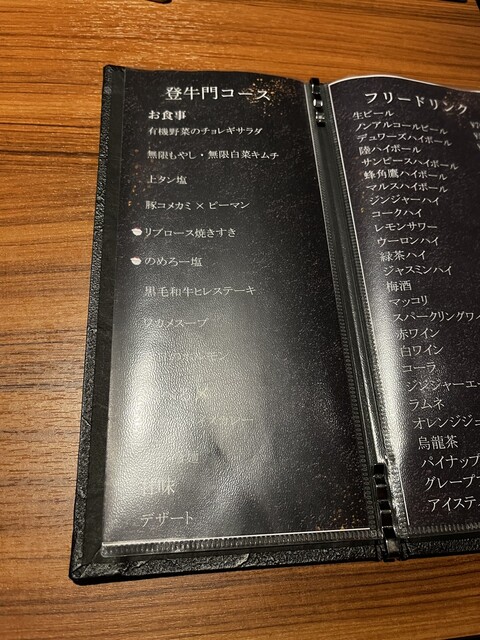 登牛門コース
お食事
有機野菜のチョレギサラダ
無限もやし・無限白菜キムチ
上タン塩
豚コメカミ×ピーマン
リブロース焼きすき
のめろー塩
黒毛和牛ヒレステーキ
ワカメスープ
ホルモン
×
甘味
デザート
フリードリンク
生ビール
ノンアルコールビール
デュワーズハイボール
陸ハイボール
サンピースハイボール
蜂角鷹ハイボール
マルスハイボール
ジンジャーハイ
コークハイ
レモンサワー
ウーロンハイ
緑茶ハイ
ジャスミンハイ
梅酒
マッコリ
スパークリングワイ
赤ワイン
白ワイン
コーラ
ジンジャーエー
ラムネ
オレンジジュ
烏龍茶
パイナップ
グレープフ
アイステ